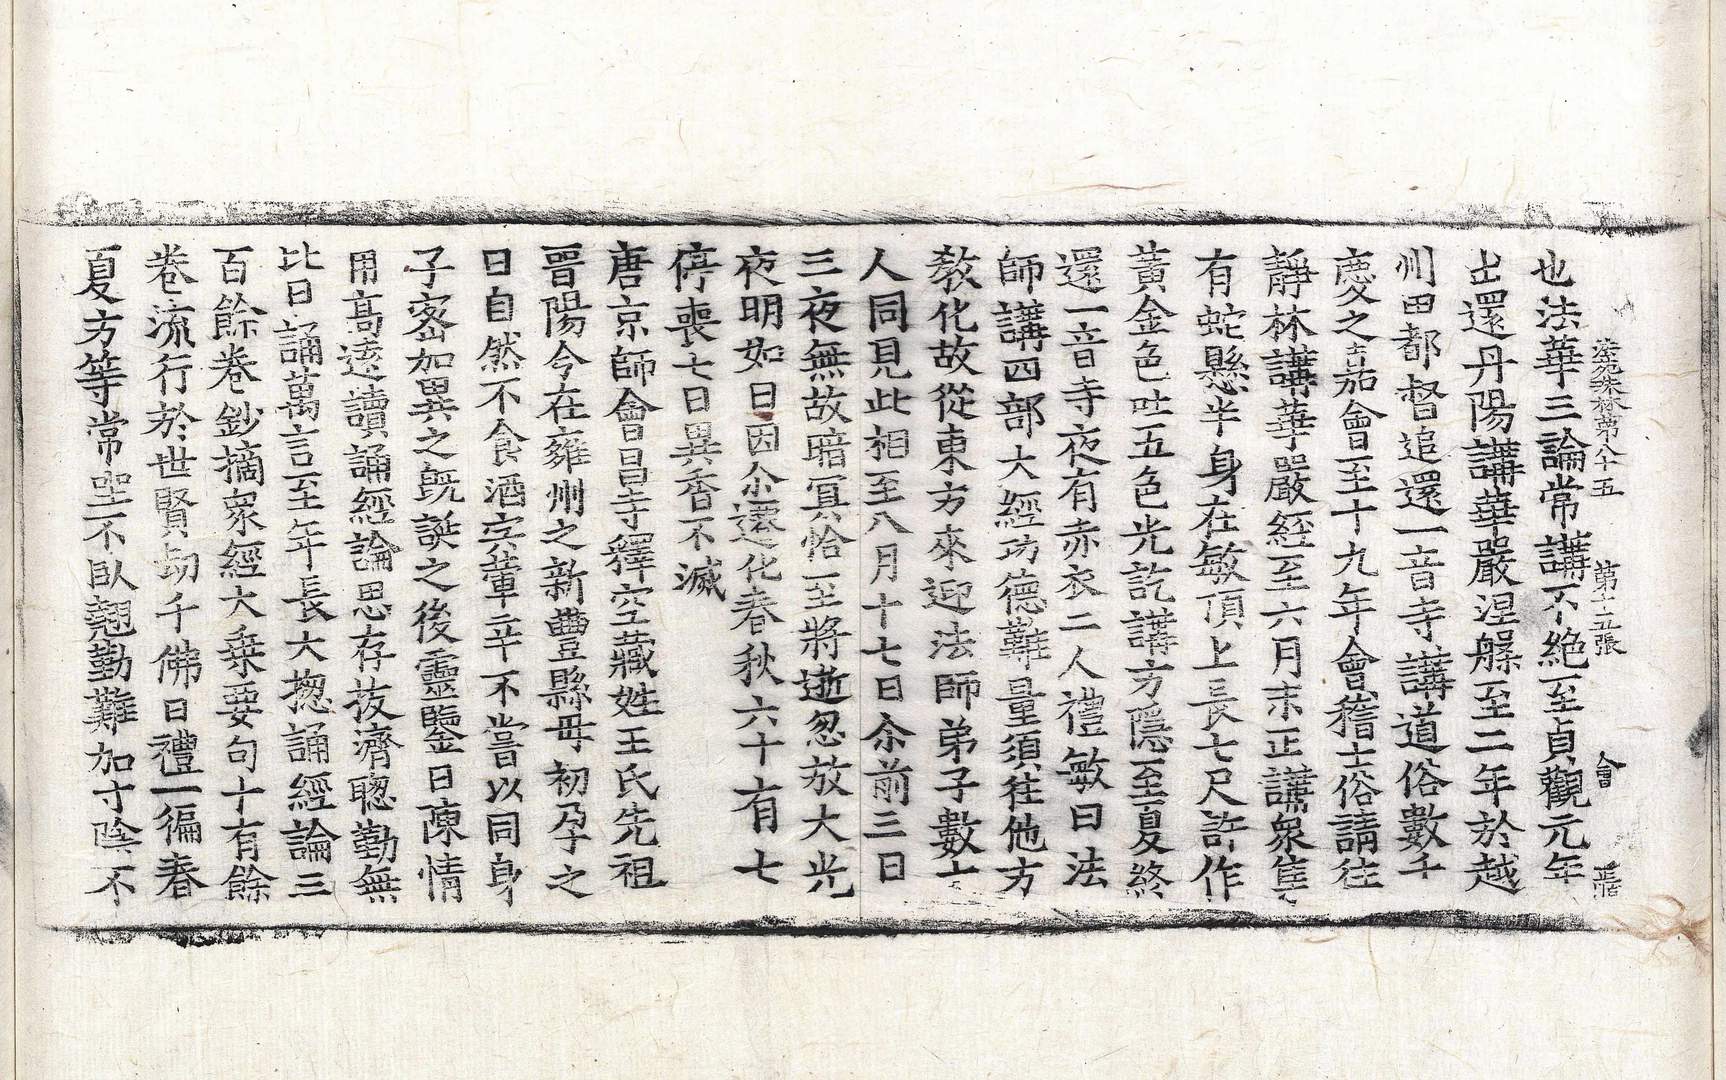 法苑珠林第八十五　第十五張　會
也法華三論常講不絕至貞觀元年
出還丹陽講華嚴涅槃至二年於越
州田都督追還一音寺講道俗數千
慶之嘉會至十九年會稽士俗請往
靜林講華嚴經至六月末正講衆集
有蛇懸半身在敏頂上長七尺許作
黃金色吐五色光訖講方隱至夏終
還一音寺夜有赤衣二人禮敏曰法
師講四部大經功德難量須往他方
教化故從東方來迎法師弟子數十
人同見此相至八月十七日尒前三日
三夜無故暗冥恰至將逝忽放大光
夜明如日因尒遷化春秋六十有七
停喪七日異香不滅
唐京師會昌寺釋空藏姓王氏先祖
晉陽今在雍州之新豐縣母初孕之
日自然不食酒肉葷辛不嘗以同身
子密加異之旣誕之後靈鑒日陳情
用高遠讀誦經論思存拔濟聰勤無
比日誦萬言至年長大揔誦經論三
百餘卷鈔摘衆經大乗要句十有餘
卷流行於世賢劫千佛日禮一徧春
夏方等常坐不臥翹勤難加寸陰不